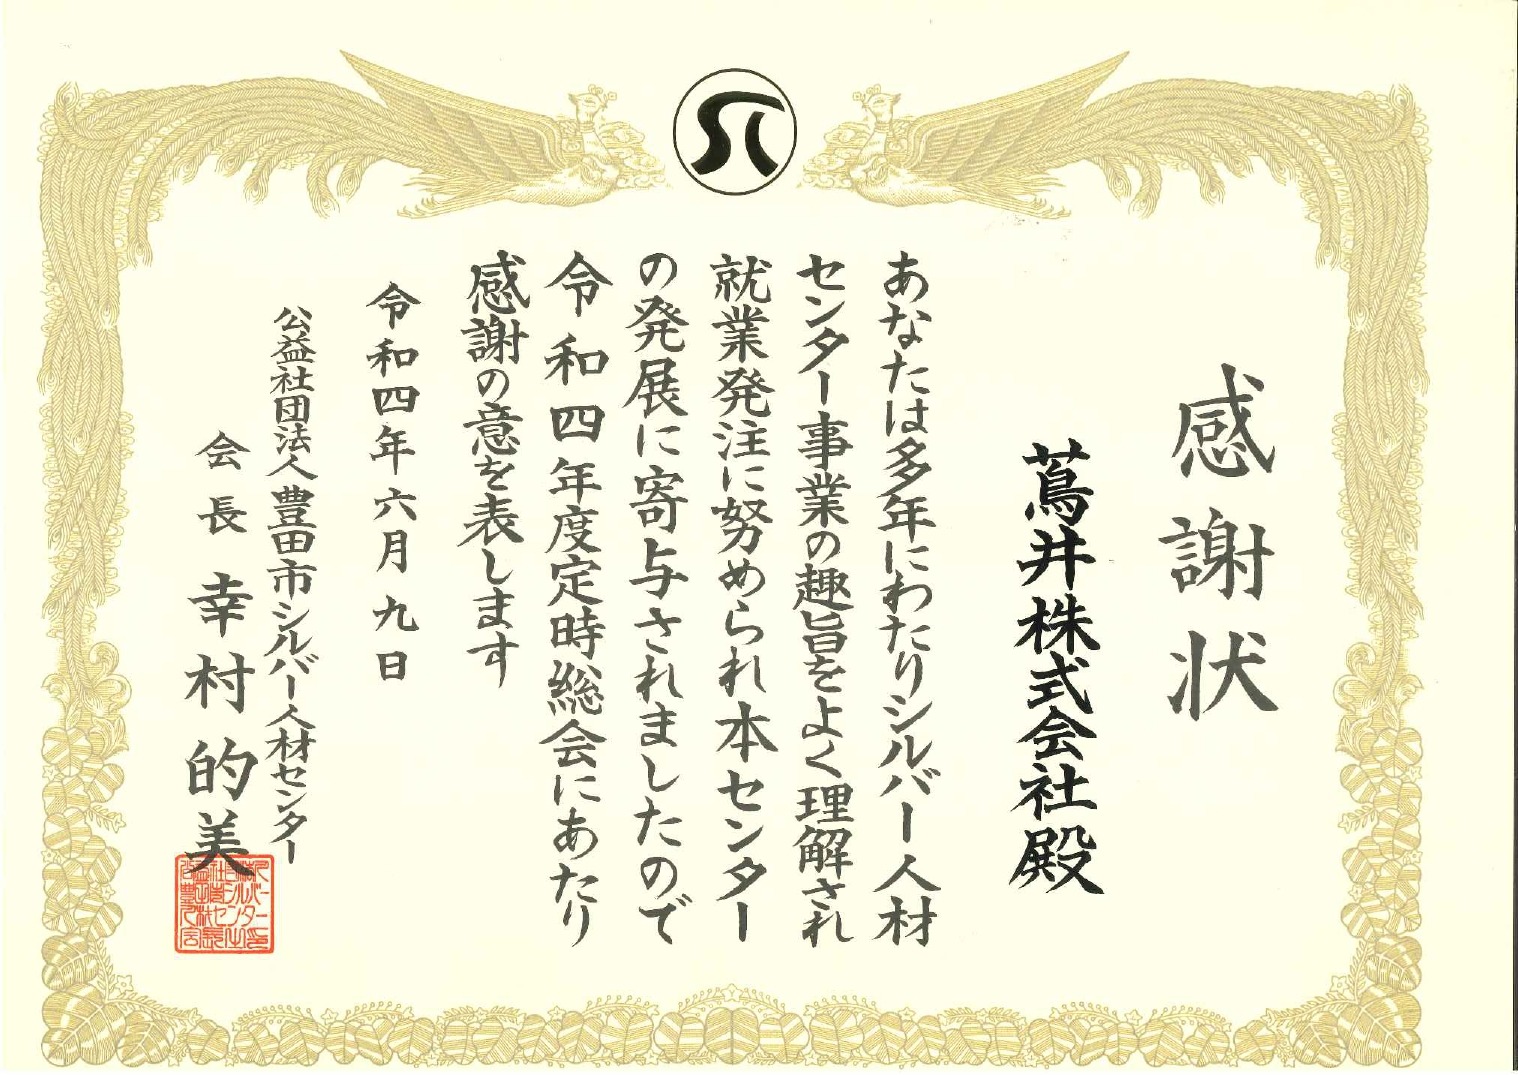 感謝状
蔦井株式会社殿
あなたは多年にわたりシルバー人材
センター事業の趣旨をよく理解され
就業発注に努められ本センター
の発展に寄与されましたので
令和四年度定時総会にあたり
感謝の意を表します
令和四年六月九日
公益社団法人豊田市シルバー人材センター
会長 幸村的美